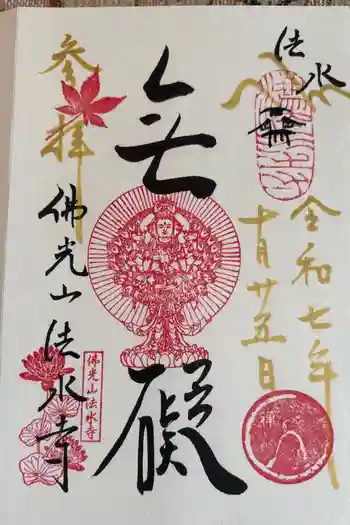 法水
令和七年
十月廿五日
無礙
参拝
佛光山法水寺
佛光山法水寺
禅